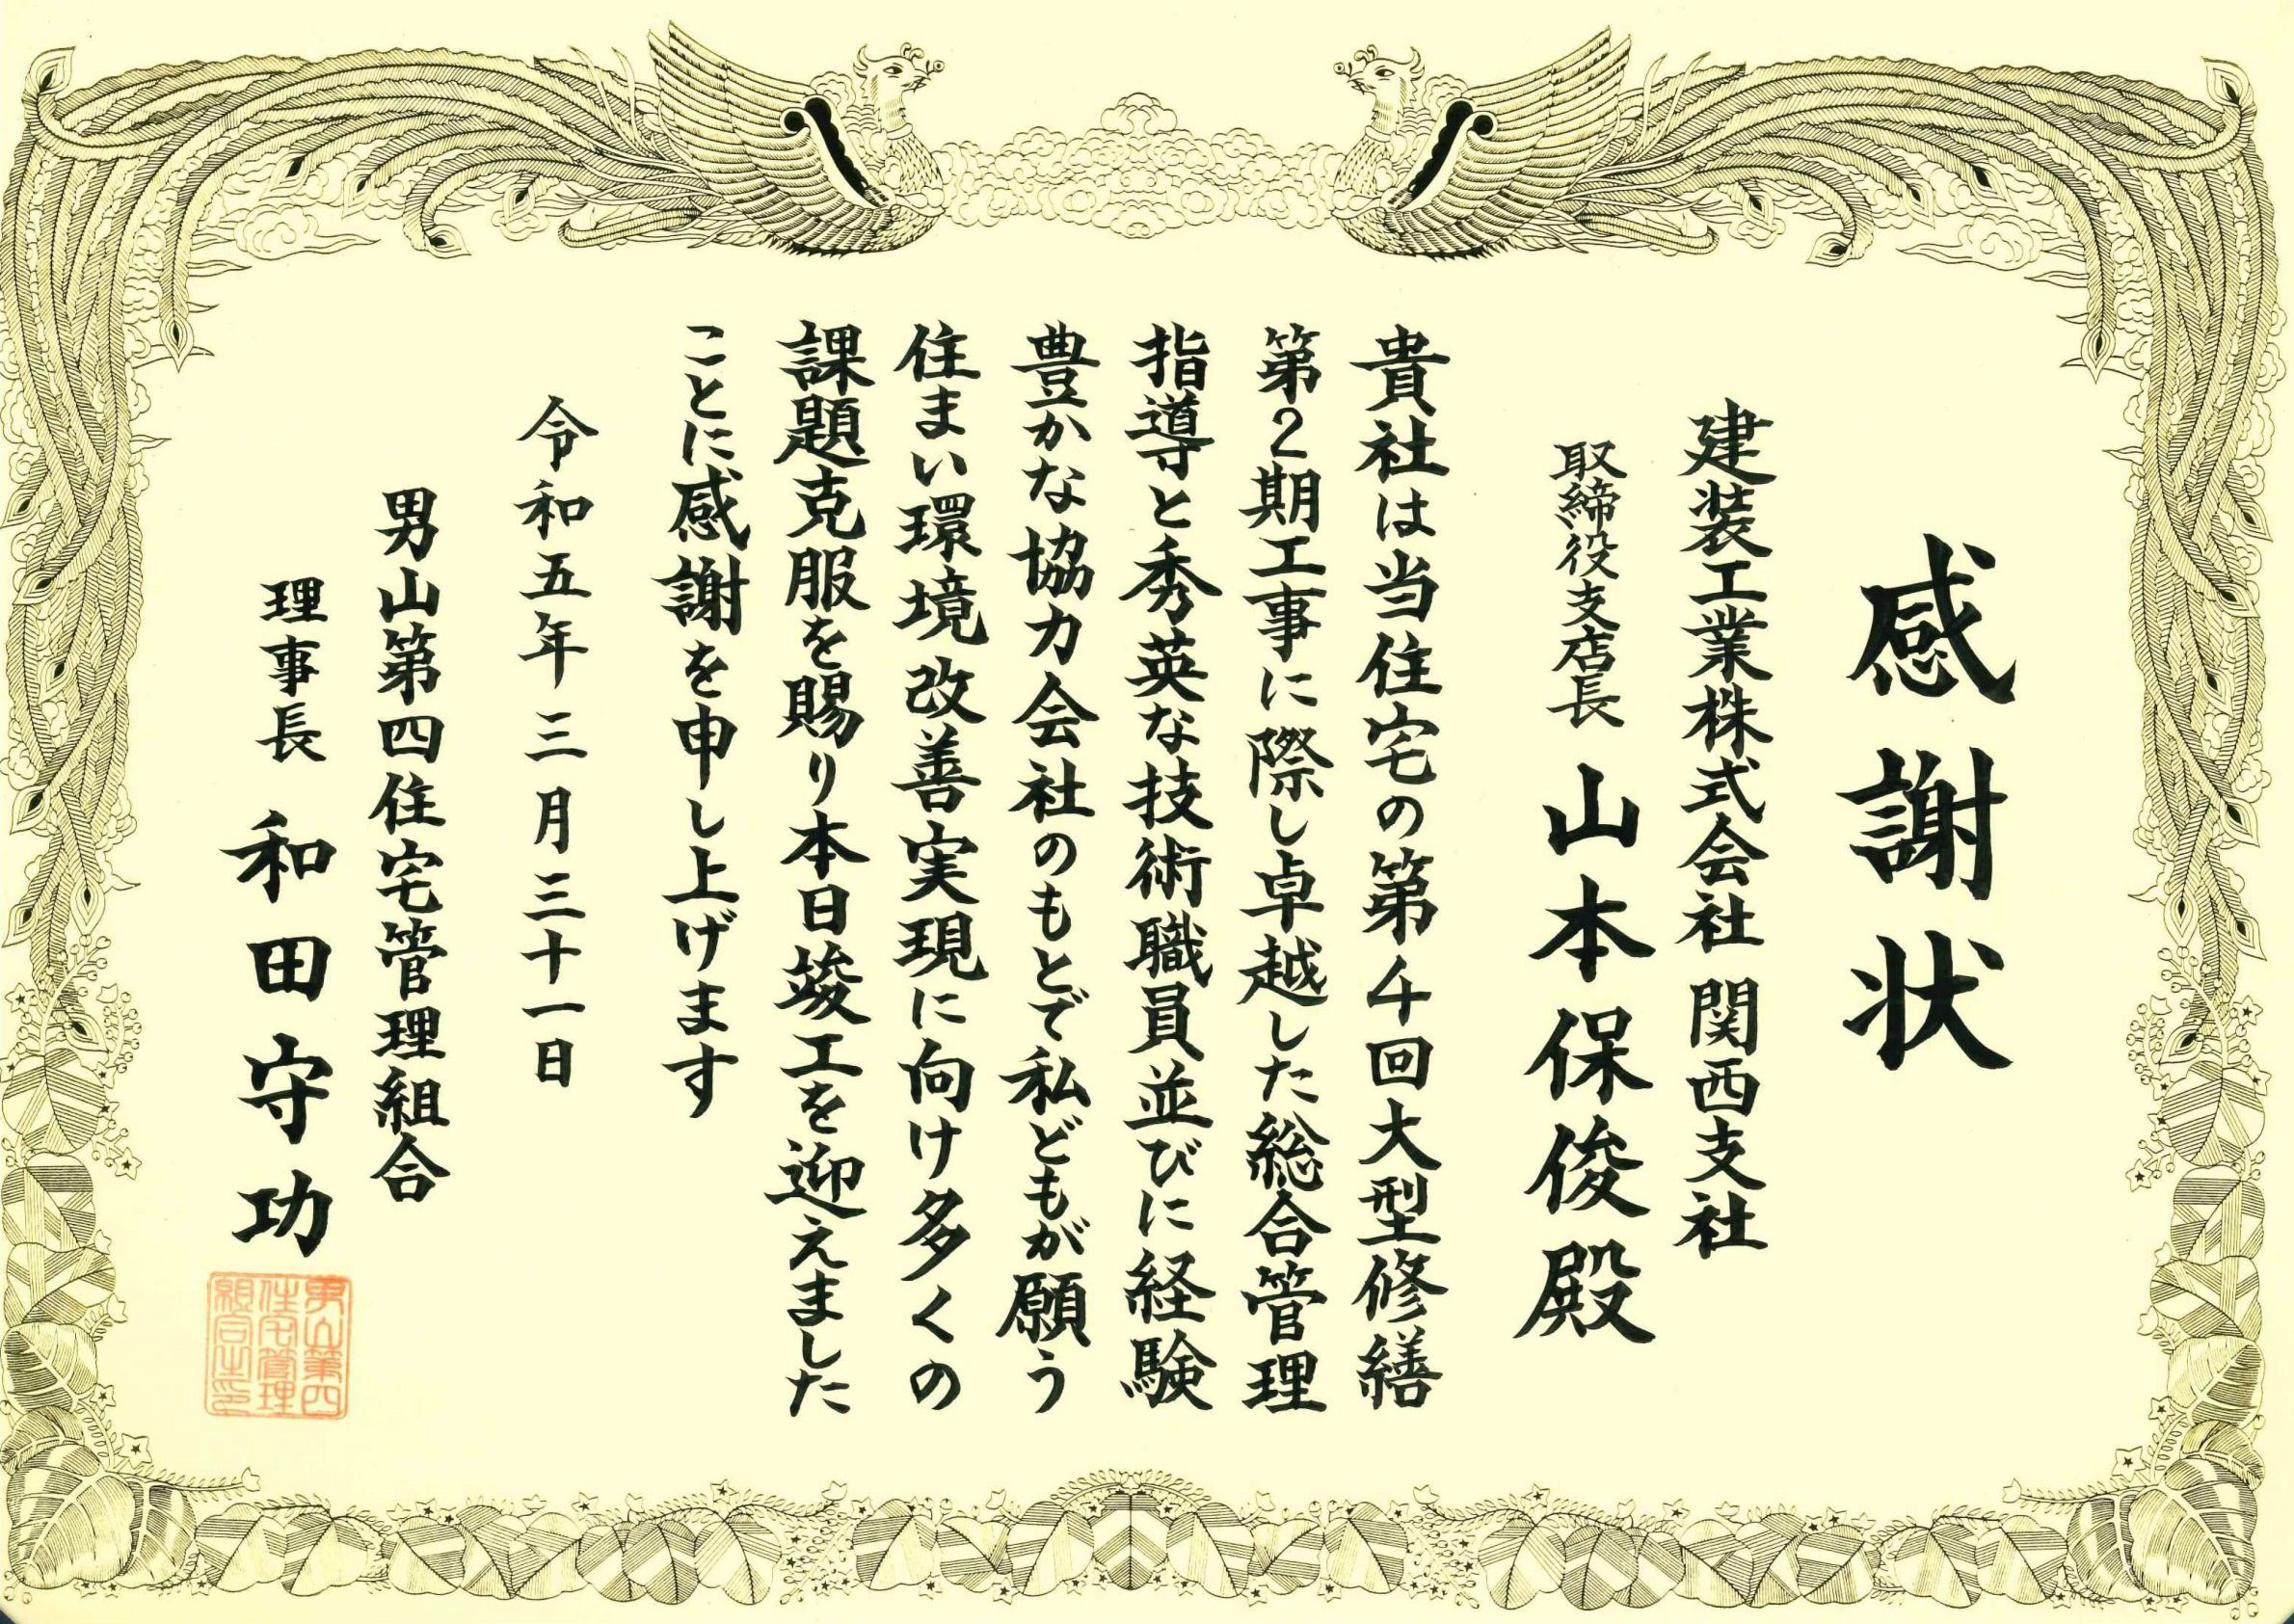 感謝状
建装工業株式会社 関西支社
取締役支店長 山本保俊殿
貴社は当住宅の第4回大型修繕
第2期工事に際し卓越した総合管理
指導と秀英な技術職員並びに経験
豊かな協力会社のもとで私どもが願う
住まい環境改善実現に向け多くの
課題克服を賜り本日竣工を迎えました
ことに感謝を申し上げます
令和五年三月三十一日
男山第四住宅管理組合
理事長 和田守功
男山第四
住宅管理
組合之印